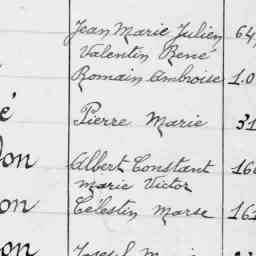 Jean Marie Julien 64
Valentin René
Romain Ambroise 1.0
é Pierre Marie 31
don Albert Constant 160
Marie Victor
on Célestin Marse 161
on Joseph